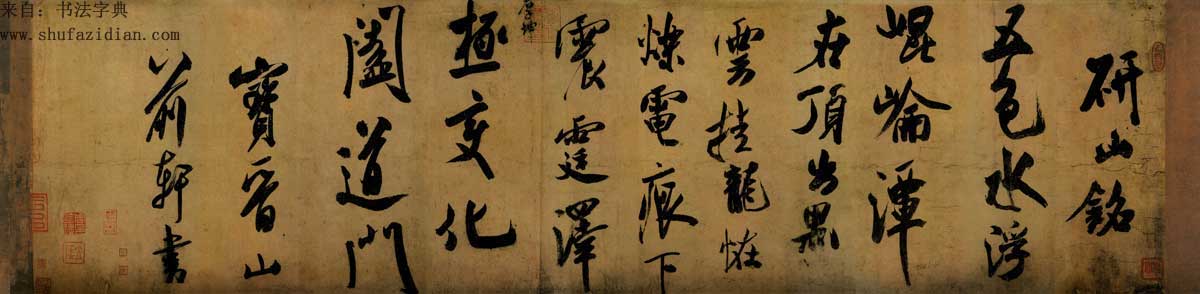 来自：书法字典
www.shufazidian.com
研山銘
五色水浮
崐崘潭
在頂出黑
雲挂龍恠
爍電痕下
震霆澤
厚坤
極變化
闔道門
寶晉山
前軒書